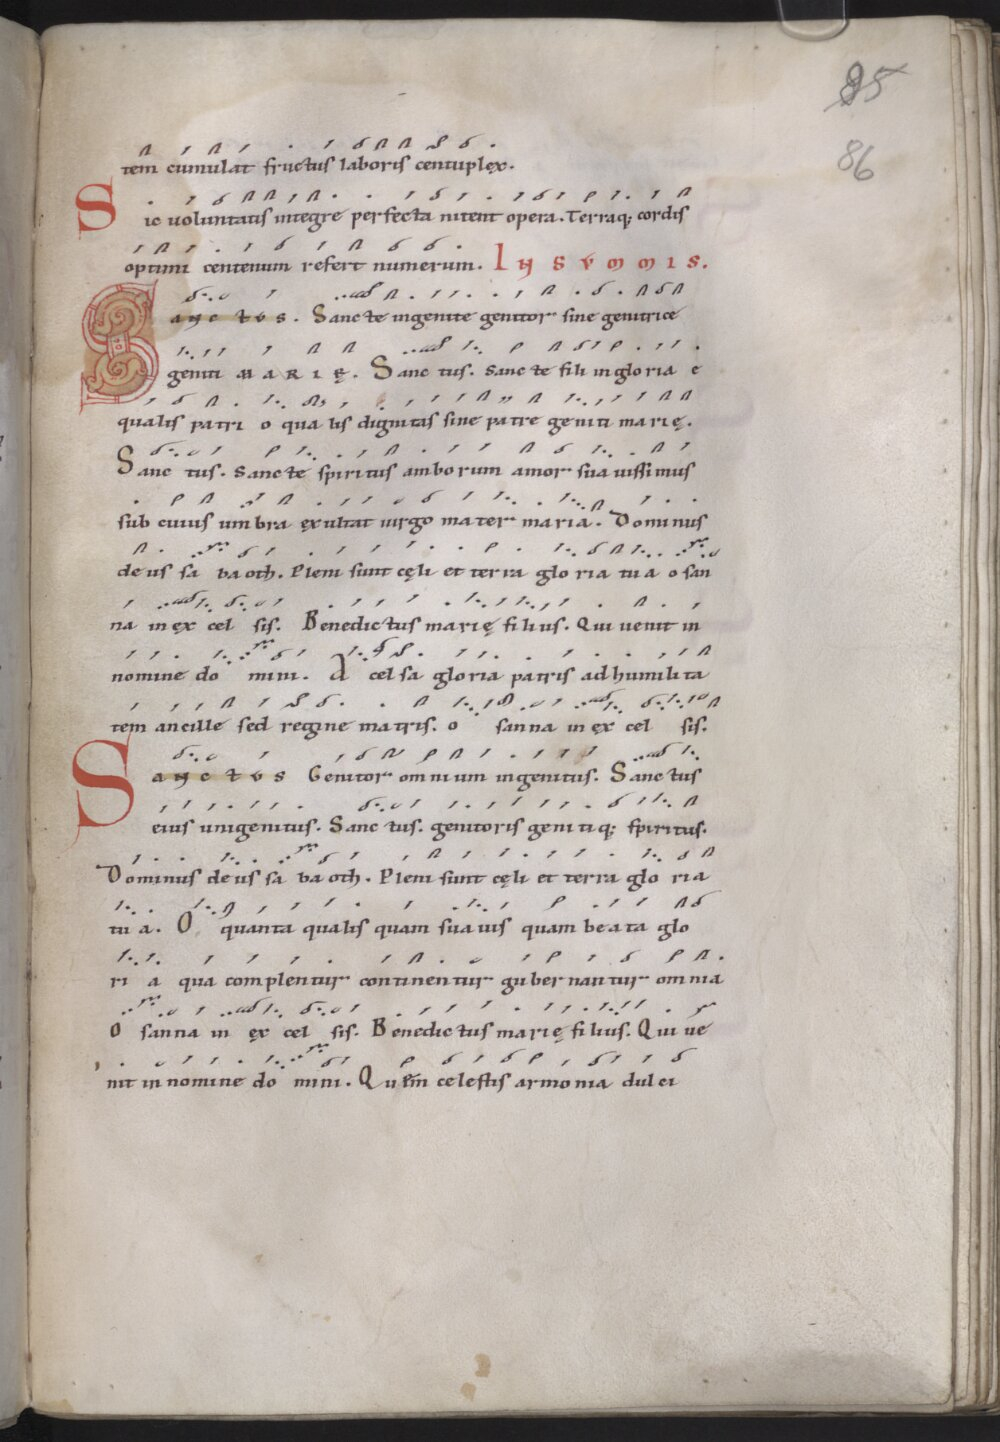 85
86
tem cumulat fructus laboris centuplex.
Sic voluntatis integre perfecta nitent opera. Terraq; cordis
optimi centenum refert numerum. IN SVMMIS.
SANCTVS. Sancte ingenite genitor sine genitrice
geniti MARIĘ. Sanc tus. Sancte fili in gloria e
qualis patri o qua lis dignitas sine patre geniti marię.
Sanc tus. Sancte spiritus amborum amor suauissimus
sub cuius umbra exultat uirgo mater maria. Dominus
deus sa baoth. Pleni sunt cęli et terra glo ria tua o san
na in ex cel sis. Benedictus marię filius. Qui uenit in
nomine do mini. A cel sa gloria patris ad humilita
tem ancille sed regine matris. o sanna in ex cel sis.
SANCTVS Genitor omnium ingenitus. Sanctus
eius unigenitus. Sanc tus. genitoris genitiq; spiritus.
Dominus deus sa ba oth. Pleni sunt cęli et terra glo ria
tu a. O quanta qualis quam suauis quam beata glo
ri a qua complentur continentur gubernantur omnia
O sanna in ex cel sis. Benedictus marię filius. Qui ue
nit in nomine do mini. Quem celestis armonia dulci